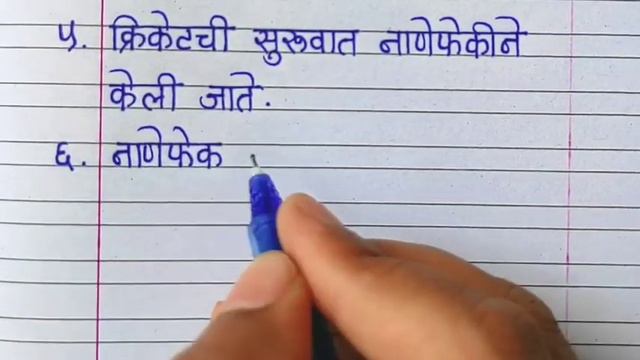 ५. क्रिकेटची सुरूवात नाणेफेकीने
केली जाते.
६. नाणेफेक